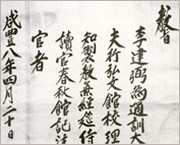 教
李建弼爲通訓大
夫行弘文館校理
知製教兼經筵侍
讀官春秋館記注
官者
咸豐八年四月二十日